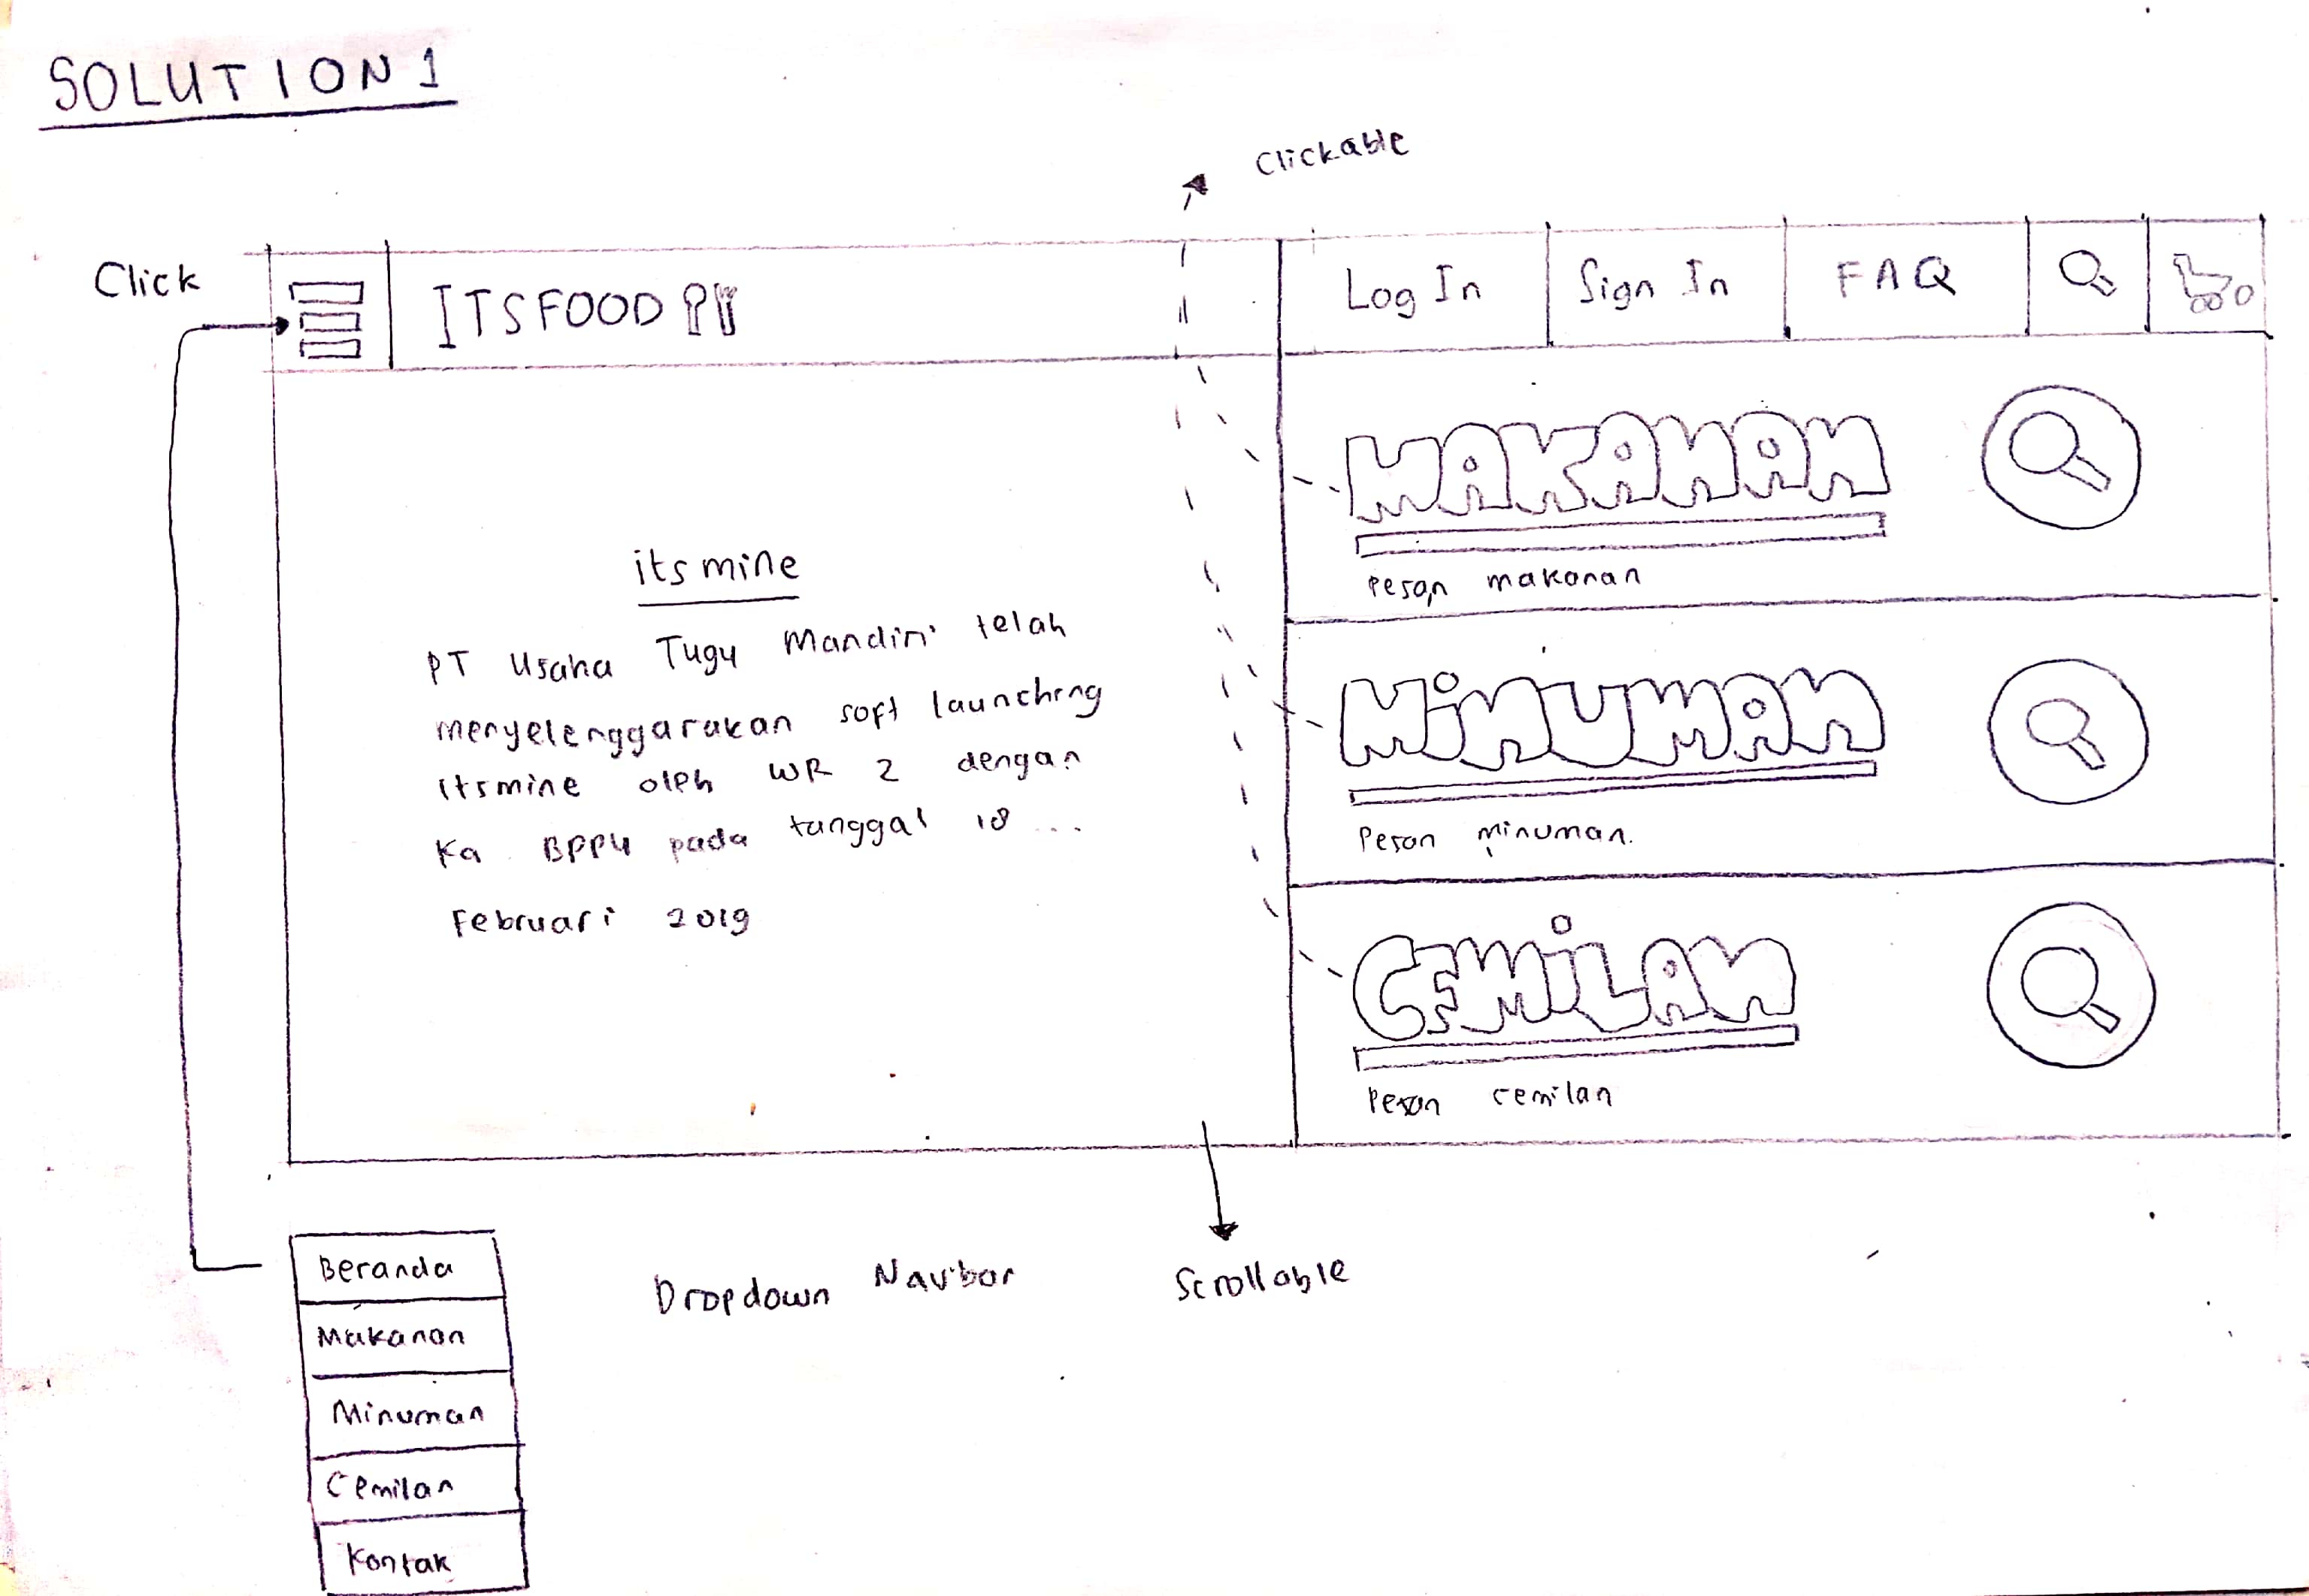 SOLUTION 1
Clickable
Click
ITSFOOD
Log In
Sign In
FAQ
MAKANAN
Pesan makanan
itsmine
PT Usaha Tugu Mandiri telah
menyelenggarakan soft launching
itsmine oleh WR 2 dengan
Ka BPPU pada tanggal 18 ...
Februari 2019
MiNUMAN
Pesan minuman.
CEMiLAN
Pesan cemilan
Beranda
Makanan
Minuman
Cemilan
Kontak
Dropdown Navbar
Scrollable